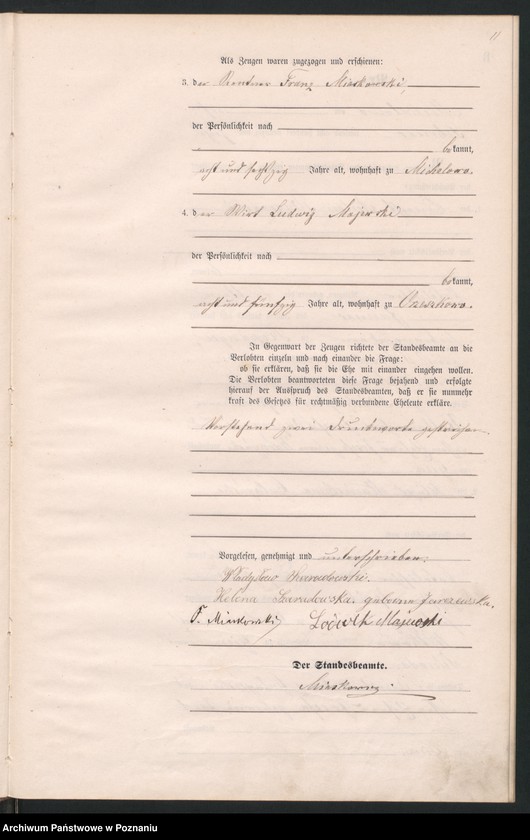 11
Als Zeugen waren zugezogen und erschienen:
3. der Rentner Franz Mieskowski,
der Persönlichkeit nach
bekannt,
acht und sechszig Jahre alt, wohnhaft zu Michelowo.
4. der Wirt Ludwig Majewski
der Persönlichkeit nach
bekannt,
acht und fünfzig Jahre alt, wohnhaft zu Orzeszkowo.
In Gegenwart der Zeugen richtete der Standesbeamte an die
Verlobten einzeln und nach einander die Frage:
ob sie erklären, daß sie die Ehe mit einander eingehen wollen.
Die Verlobten beantworteten diese Frage bejahend und erfolgte
hierauf der Ausspruch des Standesbeamten, daß er sie nunmehr
kraft des Gesetzes für rechtmäßig verbundene Eheleute erkläre.
Vorstehend zwei Druckworte gestrichen
Vorgelesen, genehmigt und unterschrieben:
Władysław
Helena geborne
F. Mieskowski Majewski
Der Standesbeamte.
Archiwum Państwowe w Poznaniu